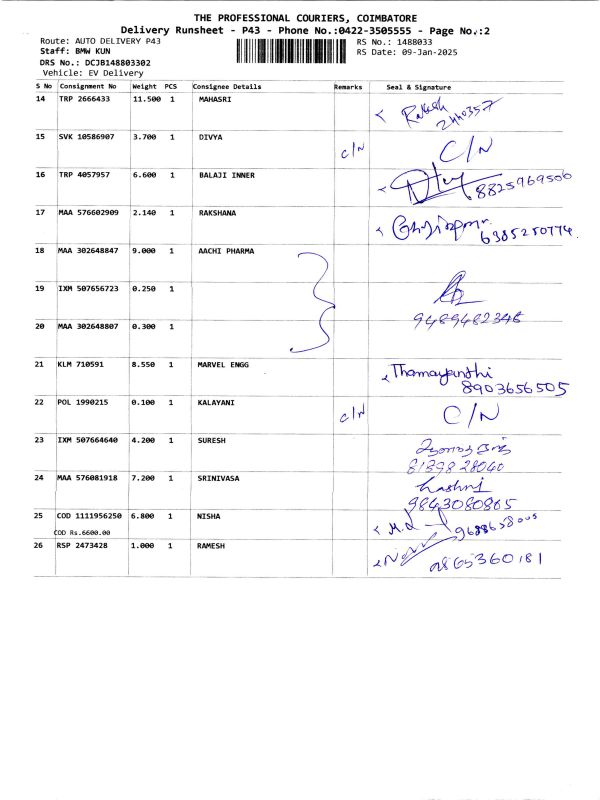 THE PROFESSIONAL COURIERS, COIMBATORE
Delivery Runsheet - P43 - Phone No.:0422-3505555 - Page No.:2
Route: AUTO DELIVERY P43 RS No.: 1488033
Staff: BMW KUN RS Date: 09-Jan-2025
DRS No.: DCJB148803302
Vehicle: EV Delivery
S No Consignment No Weight PCS Consignee Details Remarks Seal & Signature
14 TRP 2666433 11.500 1 MAHASRI
15 SVK 10586907 3.700 1 DIVYA C/N C/N
16 TRP 4057957 6.600 1 BALAJI INNER 8825969506
17 MAA 576602909 2.140 1 RAKSHANA 6385250774
18 MAA 302648847 9.000 1 AACHI PHARMA
19 IXM 507656723 0.250 1
20 MAA 302648807 0.300 1 9489482346
21 KLM 710591 8.550 1 MARVEL ENGG Thamayanthi
8903656505
22 POL 1990215 0.100 1 KALAYANI C/N C/N
23 IXM 507664640 4.200 1 SURESH
8139828040
24 MAA 576081918 7.200 1 SRINIVASA
9843080865
25 COD 1111956250 6.800 1 NISHA
COD Rs.6600.00
26 RSP 2473428 1.000 1 RAMESH 9865360181